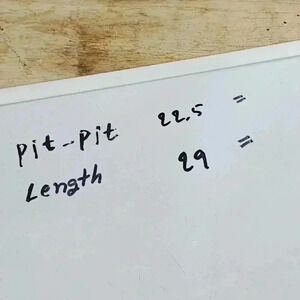 Pit-Pit 22.5 "
Length 29 "